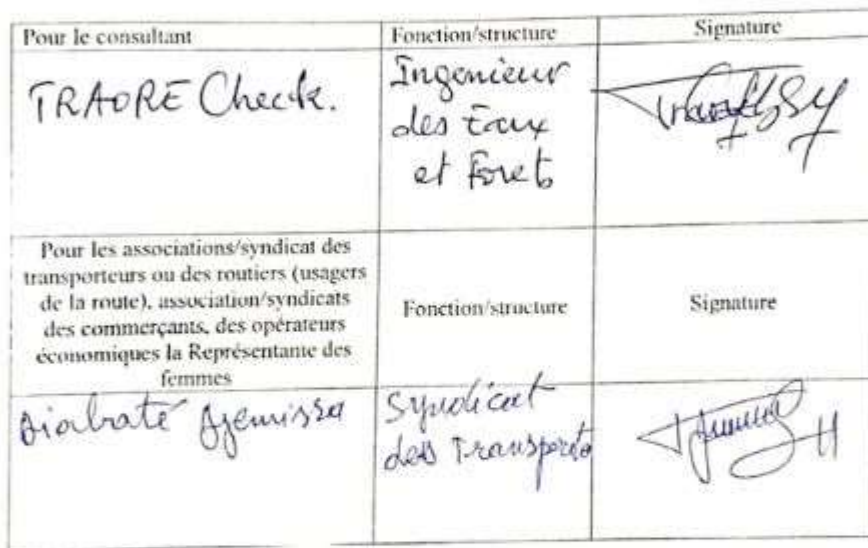 Pour le consultant
Fonction/structure
Signature
TRAORE Check.
Ingenieur
des Eaux
et Forets
Pour les associations/syndicat des
transporteurs ou des routiers (usagers
de la route), association/syndicats
des commerçants, des opérateurs
économiques la Représentante des
femmes
Fonction/structure
Signature
Diabaté
Syndicat
des Transports